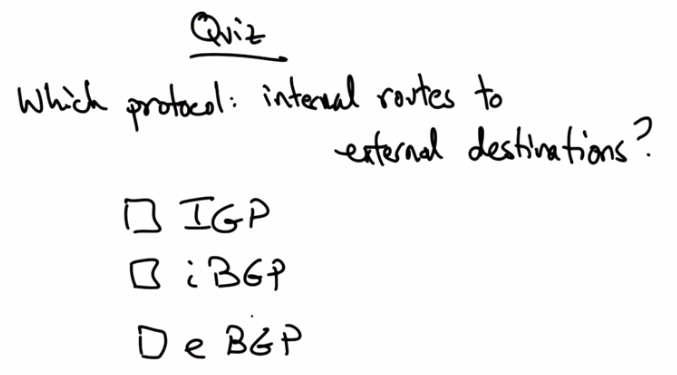 Quiz
Which protocol: internal routes to
external destinations?
IGP
iBGP
eBGP